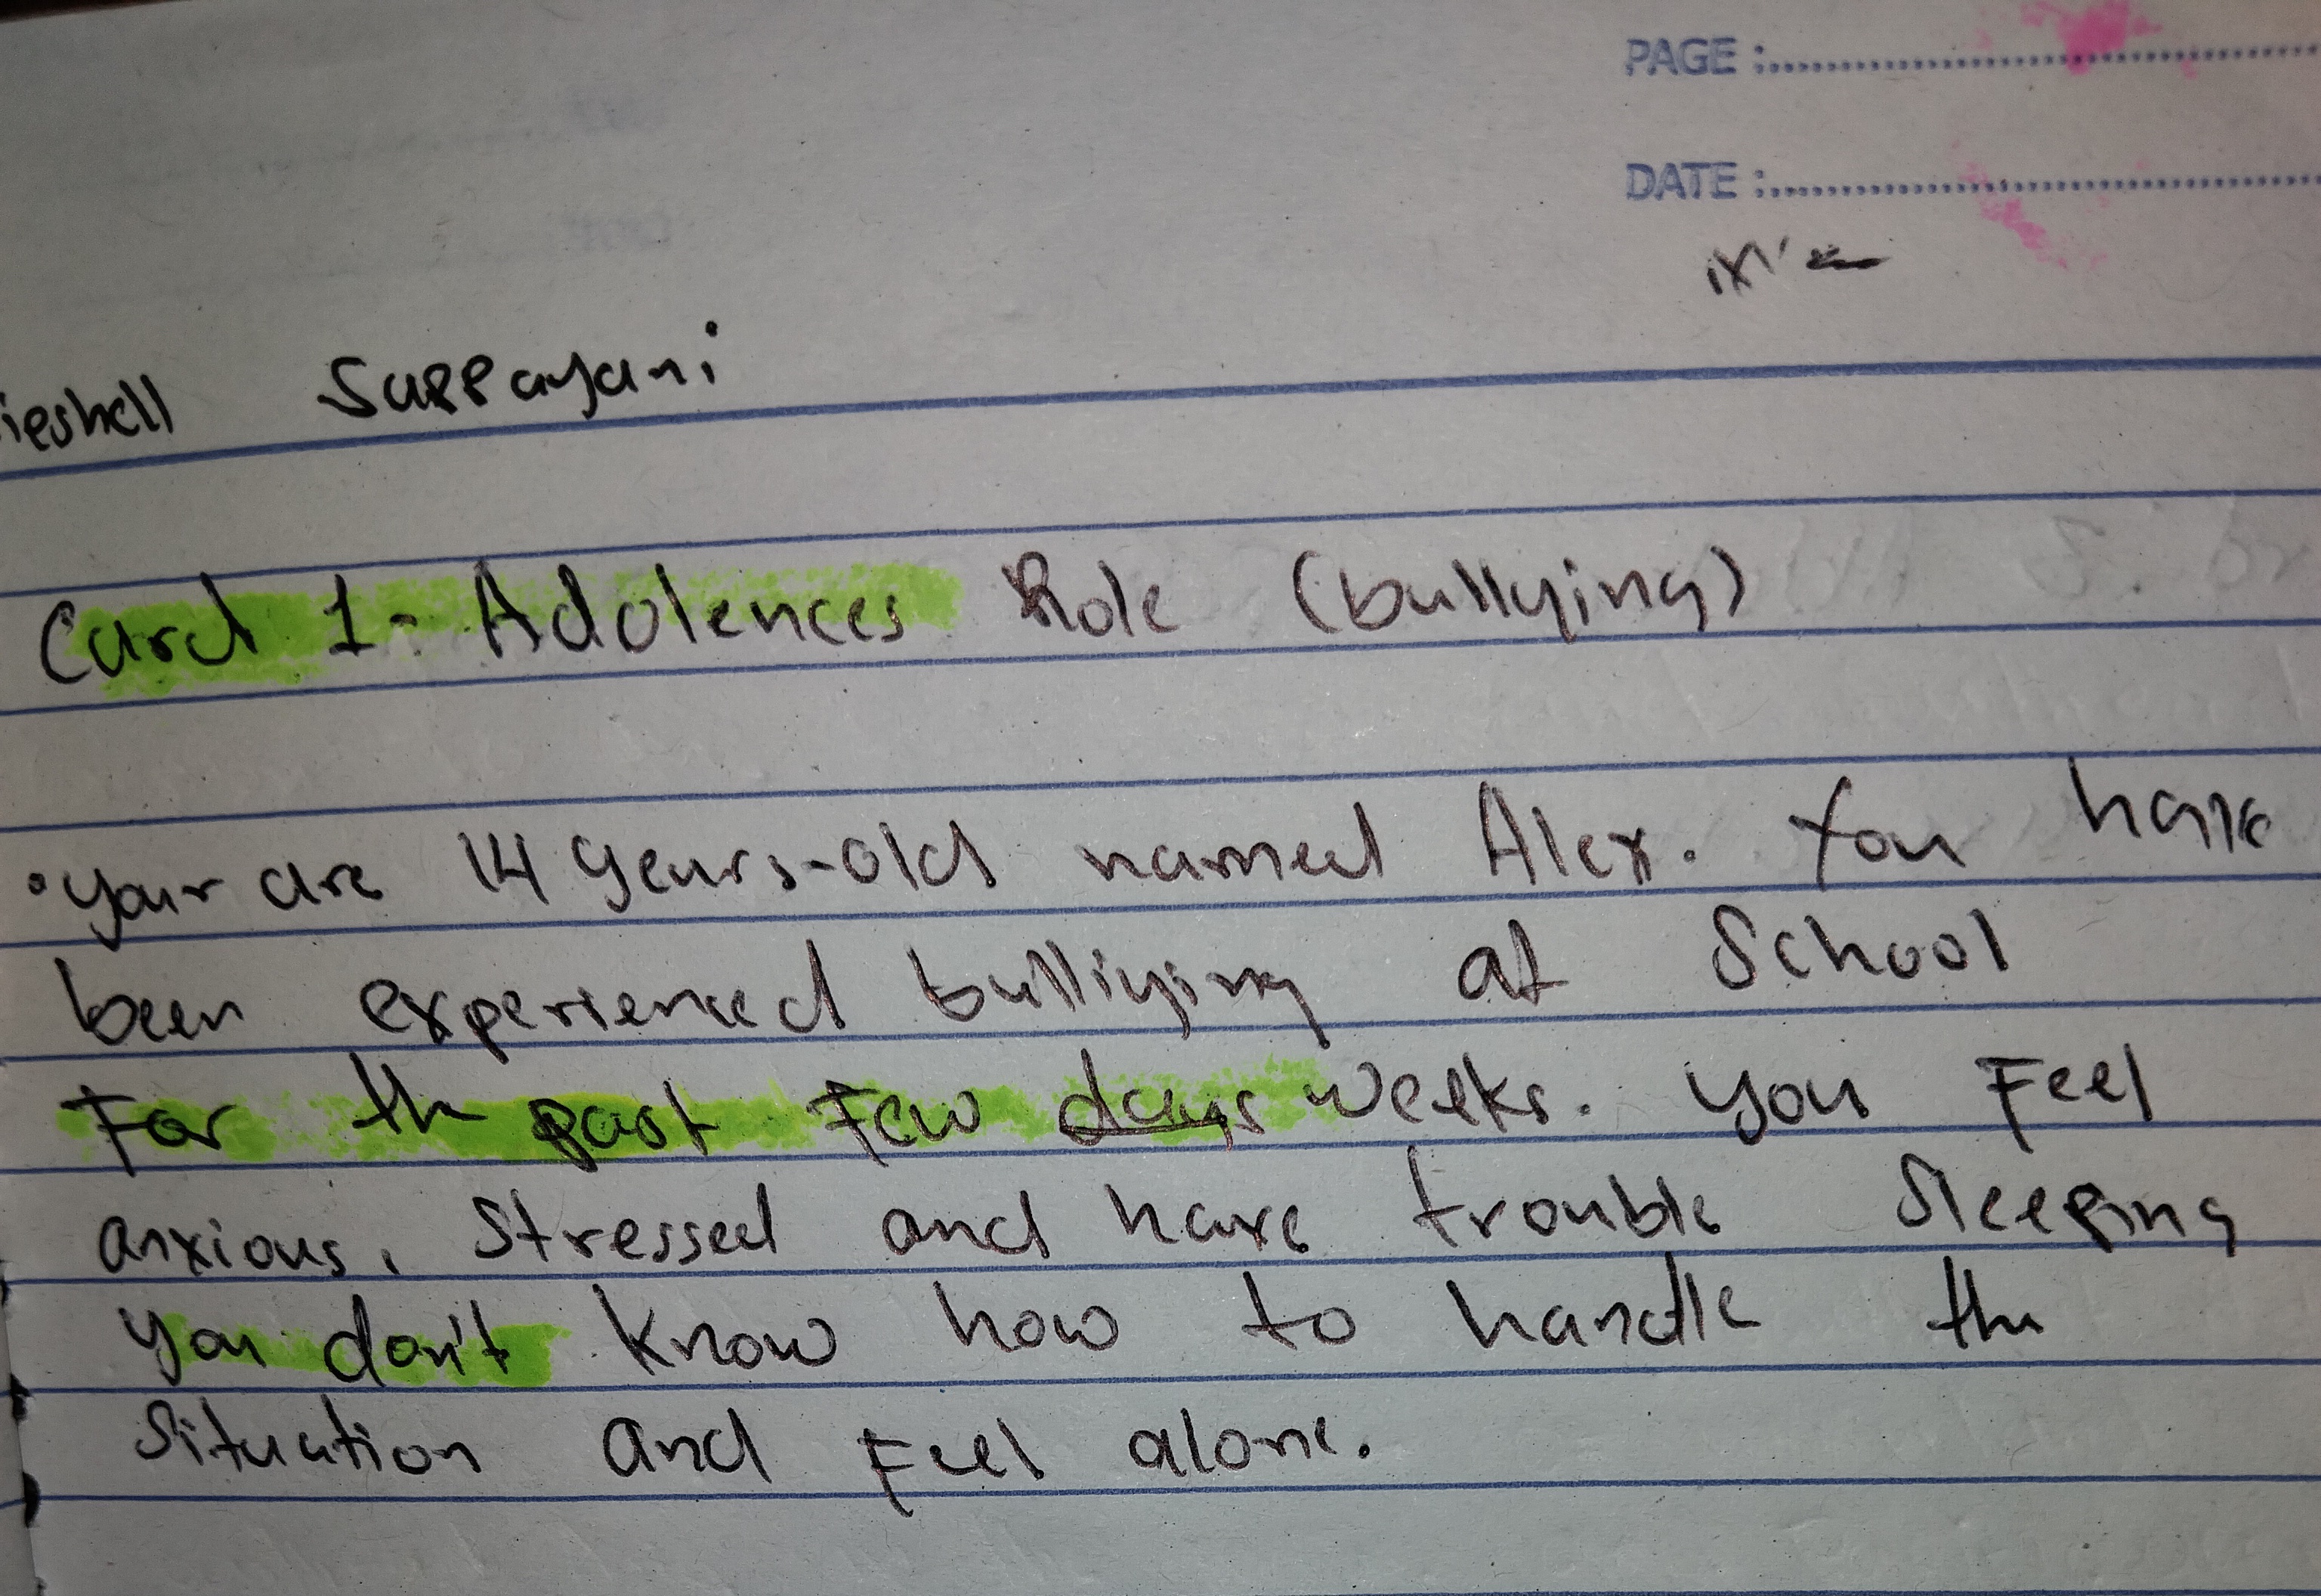 PAGE :
DATE :
ieshell Sappayani
Card 1- Adolences Role (bullying)
• your are 14 years-old named Alex. You have
been experienced bulliying at School
For the past Few days weeks. you Feel
anxious, Stressed and have trouble Sleeping
you don't know how to handle the
Situation and Feel alone.